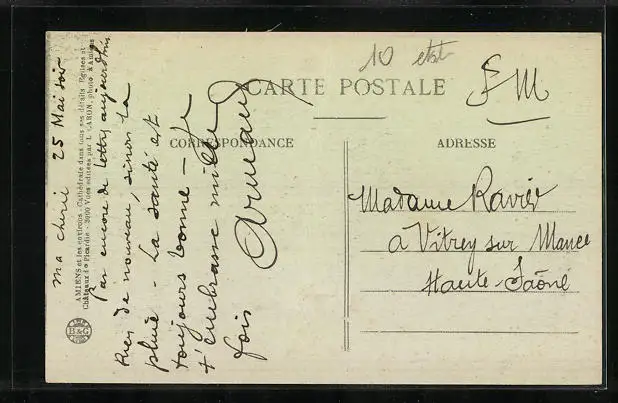 10 est
CARTE POSTALE
FM
CORRESPONDANCE
ADRESSE
Madame Ravier
à Vitrey sur Mance
Haute-Saône
AMIENS et les environs - Cathédrale dans tous ses détails Eglises et
Châteaux de Picardie - 3000 Vues éditées par L. CARON, photo. à Amiens
B&G
ma chérie 25 Mai soir
Pas encore de lettre aujourd'hui
Rien de nouveau, sinon la
pluie - La santé est
toujours bonne - Je
t'embrasse mille
fois
Armand